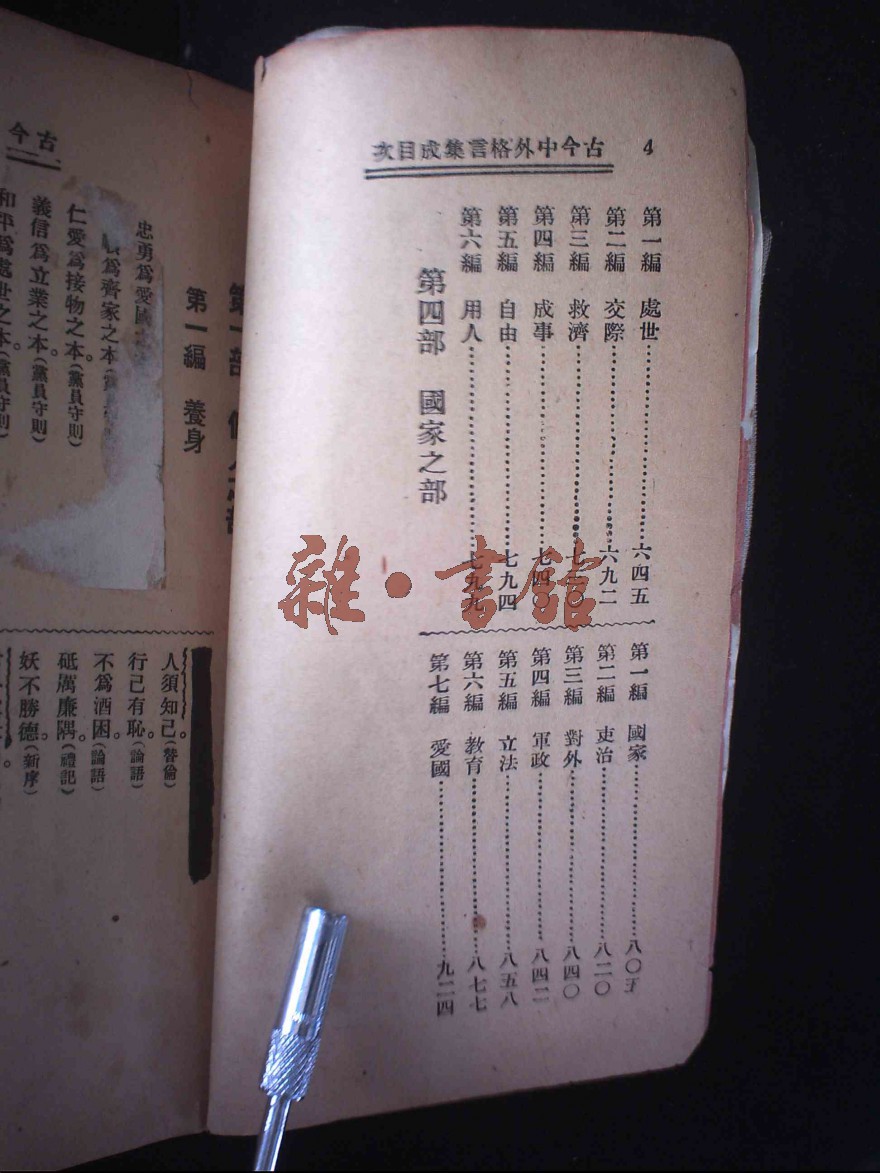 4 古今中外格言集成目次
第一編 處世……六四五
第二編 交際……六九二
第三編 救濟……
第四編 成事……七四〇
第五編 自由……七九四
第六編 用人……七九九
第四部 國家之部
第一編 國家……八〇五
第二編 吏治……八二〇
第三編 對外……八四〇
第四編 軍政……八四二
第五編 立法……八五八
第六編 教育……八七七
第七編 愛國……九二四
雜・書館
古今
第一部
第一編 養身
忠勇爲愛國
爲齊家之本(黨
仁愛爲接物之本。(黨員守則)
義信爲立業之本。(黨員守則)
和平爲處世之本。(黨員守則)
人須知己。
行己有恥。(論語)
不爲酒困。(論語)
砥厲廉隅。(禮記)
妖不勝德。(新序)